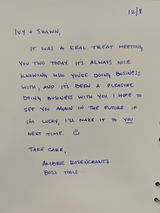 12/8
IVY + SHAWN,
IT WAS A REAL TREAT MEETING
YOU TWO TODAY. IT'S ALWAYS NICE
KNOWING WHO YOU'RE DOING BUSINESS
WITH, AND IT'S BEEN A PLEASURE
DOING BUSINESS WITH YOU. I HOPE TO
SEE YOU AGAIN IN THE FUTURE. IF
I'M LUCKY, I'LL MAKE IT TO YOU
NEXT TIME.
TAKE CARE,
ROSENCRANTZ
TOOLS